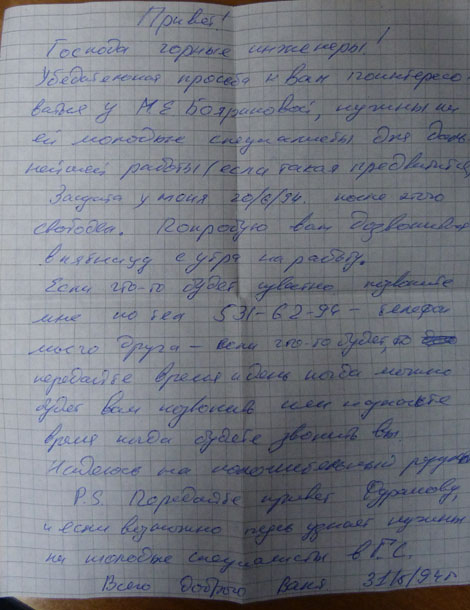 Привет!
Господа горные инженеры!
Убедительная просьба к вам поинтересо
ваться у М Е Бояриновой, нужны ли
ей молодые специалисты для даль
нейшей работы (если такая предвидится
Защита у меня 20/6/94. после этого
свободен. Попробую вам дозвониться
в пятницу с утра на работу.
Если что-то будет известно позвоните
мне по тел 531-62-94 - телефон
моего друга - если что-то будет, то
передайте время и день когда можно
будет вам позвонить или
время когда будете звонить вы.
Надеюсь на положительный
P.S. Передайте привет
и если возможно пусть узнает нужны
ли молодые специалисты в
Всего доброго Ваня 31/5/94г